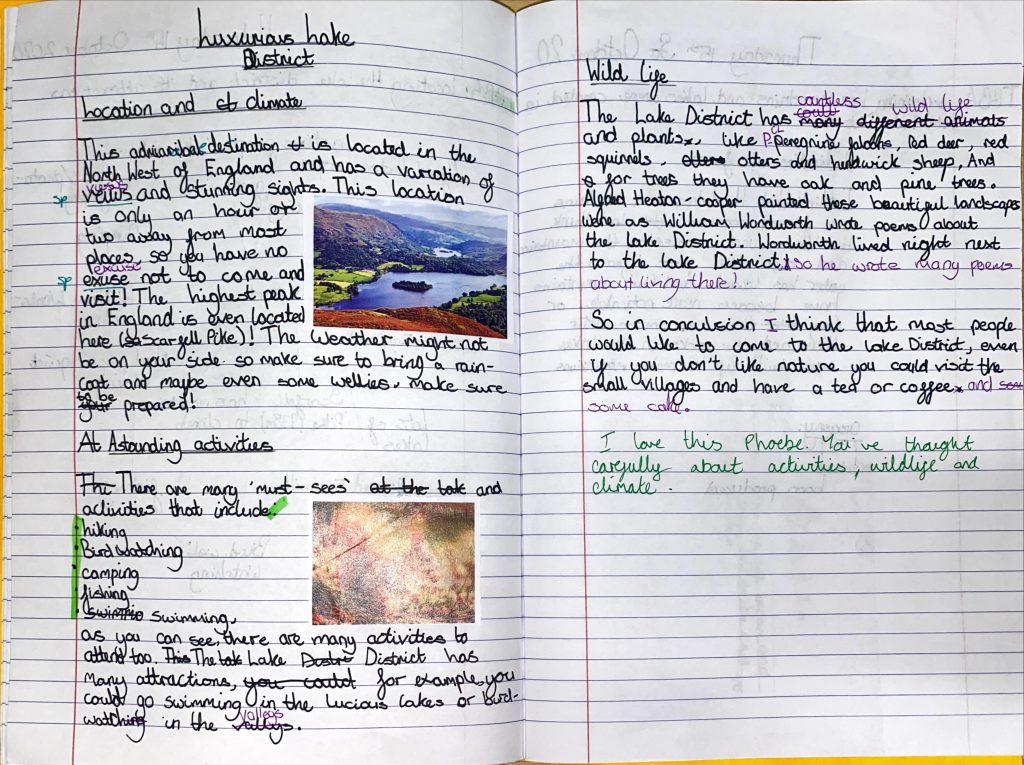 Luxurious Lake
District
Location and climate
This admirable destination is located in the
North West of England and has a variation of
views
sp views and stunning sights. This location
is only an hour or
two away from most
places, so you have no
excuse
sp exuse not to come and
visit! The highest peak
in England is even located
here (Scarfell Pike)! The Weather might not
be on your side. so make sure to bring a rain-
coat and maybe even some wellies. make sure
to be
your prepared!
At Astounding activities
The There are many 'must-sees' at the tak and
activities that include:
• hiking
• Bird watching
• camping
• fishing
• swimmin swimming,
as you can see, there are many activities to
attend too. This The Lake District has
many attractions, you could for example, you
could go swimming in the lucious lakes or bird-
valleys
watching in the vallys.
Wild life
countless wild life
The Lake District has many different animals
and plants, like Peregrine falcons, Red deer, red
squirrels, otters otters and herdwick sheep, And
for trees they have oak and pine trees.
Alfred Heaton-cooper painted these beautiful landscapes
were as William Wordworth wrote poems about
the lake District. Wordworth lived right next
to the lake District, so he wrote many poems
about living there!
So in conculsion I think that most people
would like to come to the lake District, even
if you don't like nature you could visit the
small villages and have a tea or coffee and som
some cake.
I love this Phoebe. You've thought
carefully about activities, wildlife and
climate.